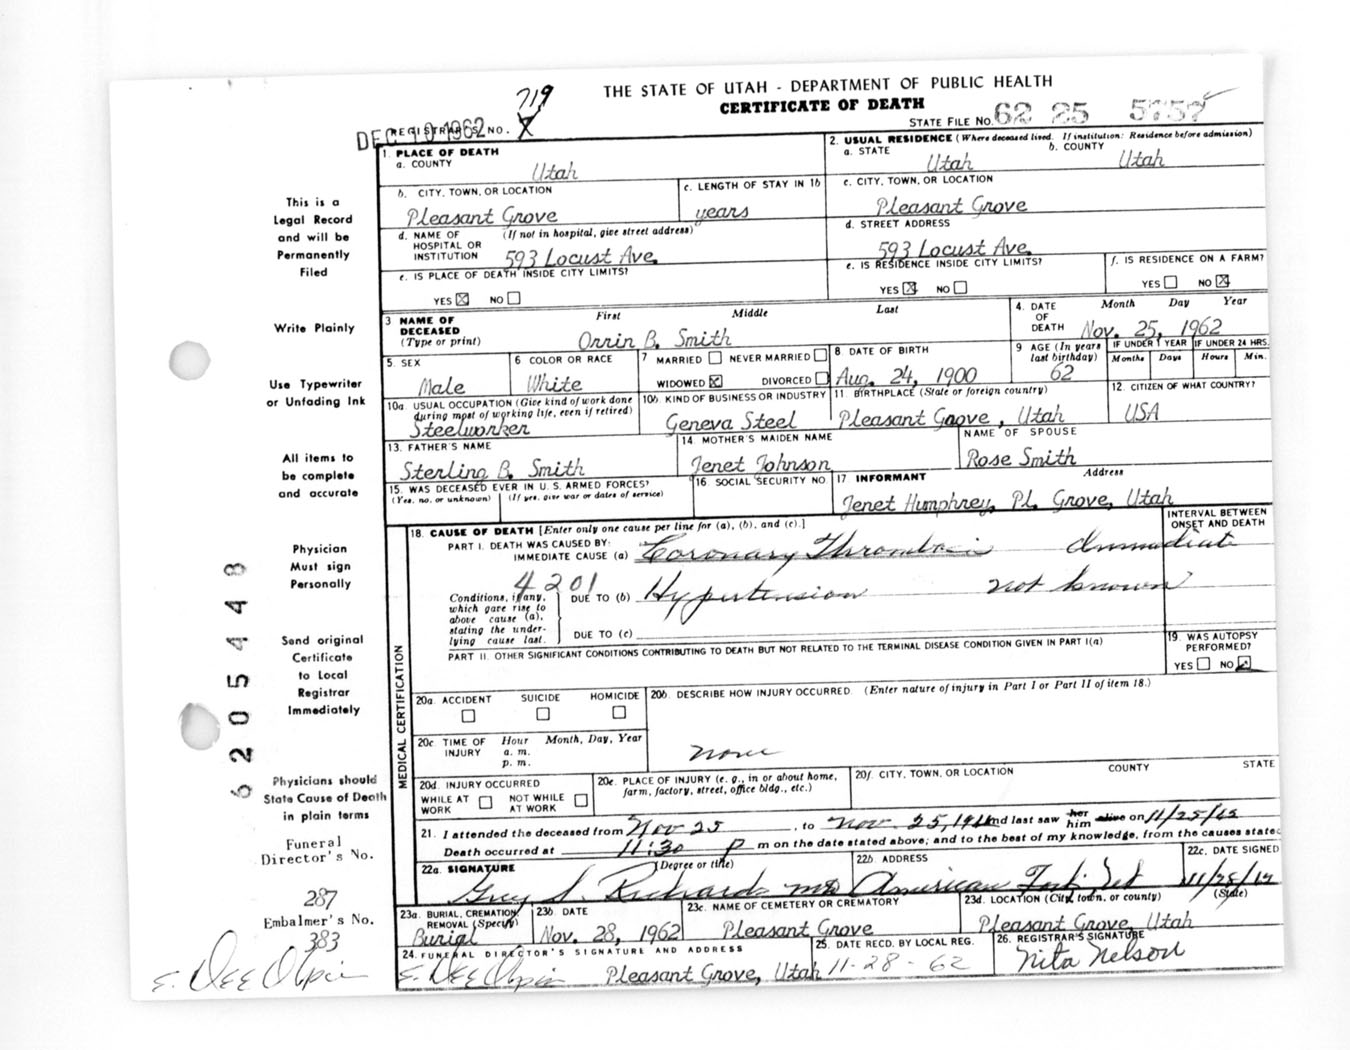 719
THE STATE OF UTAH - DEPARTMENT OF PUBLIC HEALTH
CERTIFICATE OF DEATH
DEC 10 1962
REGISTRAR'S NO. X
STATE FILE NO. 62 25 5757
This is a
Legal Record
and will be
Permanently
Filed
Write Plainly
Use Typewriter
or Unfading Ink
All items to
be complete
and accurate
Physician
Must sign
Personally
Send original
Certificate
to Local
Registrar
Immediately
Physicians should
State Cause of Death
in plain terms
Funeral
Director's No.
287
Embalmer's No.
383
E. Dee Olpin
6205448
1. PLACE OF DEATH
a. COUNTY
Utah
2. USUAL RESIDENCE (Where deceased lived. If institution: Residence before admission)
a. STATE b. COUNTY
Utah Utah
b. CITY, TOWN, OR LOCATION
Pleasant Grove
c. LENGTH OF STAY IN 1b
years
c. CITY, TOWN, OR LOCATION
Pleasant Grove
d. NAME OF HOSPITAL OR INSTITUTION (If not in hospital, give street address)
593 Locust Ave.
d. STREET ADDRESS
593 Locust Ave.
e. IS PLACE OF DEATH INSIDE CITY LIMITS?
YES NO
e. IS RESIDENCE INSIDE CITY LIMITS?
YES NO
f. IS RESIDENCE ON A FARM?
YES NO
3 NAME OF DECEASED (Type or print)
First Middle Last
Orrin B. Smith
4. DATE OF DEATH Month Day Year
Nov. 25, 1962
5. SEX
Male
6 COLOR OR RACE
White
7 MARRIED NEVER MARRIED
WIDOWED DIVORCED
8 DATE OF BIRTH
Aug. 24, 1900
9 AGE (In years last birthday)
62
IF UNDER 1 YEAR
Months Days
IF UNDER 24 HRS.
Hours Min.
10a. USUAL OCCUPATION (Give kind of work done during most of working life, even if retired)
Steelworker
10b. KIND OF BUSINESS OR INDUSTRY
Geneva Steel
11. BIRTHPLACE (State or foreign country)
Pleasant Grove, Utah
12. CITIZEN OF WHAT COUNTRY?
USA
13. FATHER'S NAME
Sterling B. Smith
14. MOTHER'S MAIDEN NAME
Jenet Johnson
NAME OF SPOUSE
Rose Smith
15. WAS DECEASED EVER IN U. S. ARMED FORCES?
(Yes, no. or unknown) (If yes, give war or dates of service)
16. SOCIAL SECURITY NO.
17 INFORMANT Address
Jenet Humphrey, Pl. Grove, Utah
MEDICAL CERTIFICATION
18. CAUSE OF DEATH [Enter only one cause per line for (a), (b), and (c).]
INTERVAL BETWEEN ONSET AND DEATH
PART I. DEATH WAS CAUSED BY:
IMMEDIATE CAUSE (a) Coronary Thrombosis Immediate
4201
Conditions, if any, which gave rise to above cause (a), stating the underlying cause last.
DUE TO (b) Hypertension not known
DUE TO (c)
PART II. OTHER SIGNIFICANT CONDITIONS CONTRIBUTING TO DEATH BUT NOT RELATED TO THE TERMINAL DISEASE CONDITION GIVEN IN PART I(a)
19. WAS AUTOPSY PERFORMED?
YES NO
20a. ACCIDENT SUICIDE HOMICIDE
20b. DESCRIBE HOW INJURY OCCURRED. (Enter nature of injury in Part I or Part II of item 18.)
none
20c. TIME OF INJURY Hour a. m. p. m. Month, Day, Year
20d. INJURY OCCURRED
WHILE AT WORK NOT WHILE AT WORK
20e. PLACE OF INJURY (e. g., in or about home, farm, factory, street, office bldg., etc.)
20f. CITY, TOWN, OR LOCATION COUNTY STATE
21. I attended the deceased from Nov 25, to Nov. 25, 1962 and last saw her him alive on 11/25/62
Death occurred at 11:30 P m on the date stated above; and to the best of my knowledge, from the causes stated
22a. SIGNATURE (Degree or title)
Guy S. Richards MD
22b. ADDRESS
American Fork, Ut
22c. DATE SIGNED
11/28/62
23a. BURIAL, CREMATION, REMOVAL (Specify)
Burial
23b. DATE
Nov. 28, 1962
23c. NAME OF CEMETERY OR CREMATORY
Pleasant Grove
23d. LOCATION (City, town, or county) (State)
Pleasant Grove, Utah
24. FUNERAL DIRECTOR'S SIGNATURE AND ADDRESS
E. Dee Olpin Pleasant Grove, Utah
25. DATE RECD. BY LOCAL REG.
11-28-62
26. REGISTRAR'S SIGNATURE
Nita Nelson